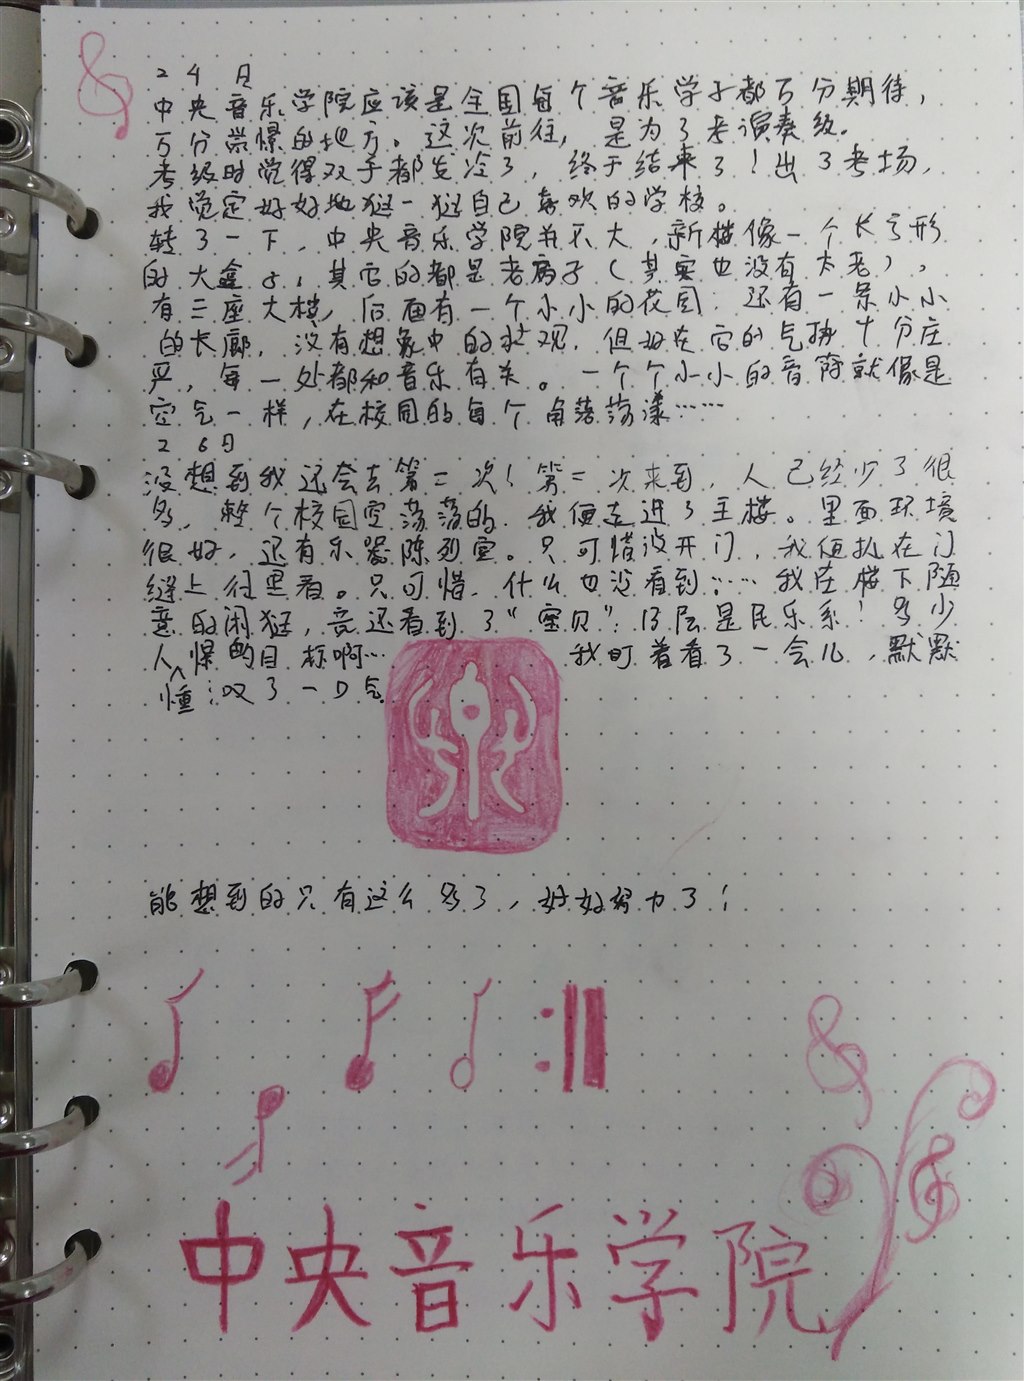 24日
中央音乐学院应该是全国每个音乐学子都万分期待，
万分崇憬的地方。这次前往，是为了考演奏级。
考级时觉得双手都发冷了，终于结束了！出了考场，
我觉定好好地逛一逛自己喜欢的学校。
转了一下，中央音乐学院并不大，新楼像一个长方形
的大盒子，其它的都是老房子（其实也没有太老），
有三座大楼，后面有一个小小的花园，还有一条小小
的长廊，没有想象中的壮观，但好在它的气势十分庄
严，每一处都和音乐有关。一个个小小的音符就像是
空气一样，在校园的每个角落荡漾……
26日
没想到我还会去第二次！第二次来到，人已经少了很
多，整个校园空荡荡的，我便走进了主楼。里面环境
很好，还有乐器陈列室。只可惜没开门，我便扒在门
缝上往里看。只可惜，什么也没看到……我在楼下随
意的闲逛，竟还看到了“宝贝”：13层是民乐系！多少
人憧憬的目标啊…我盯着看了一会儿，默默
叹了一口气
乐
能想到的只有这么多了，好好努力了！
中央音乐学院